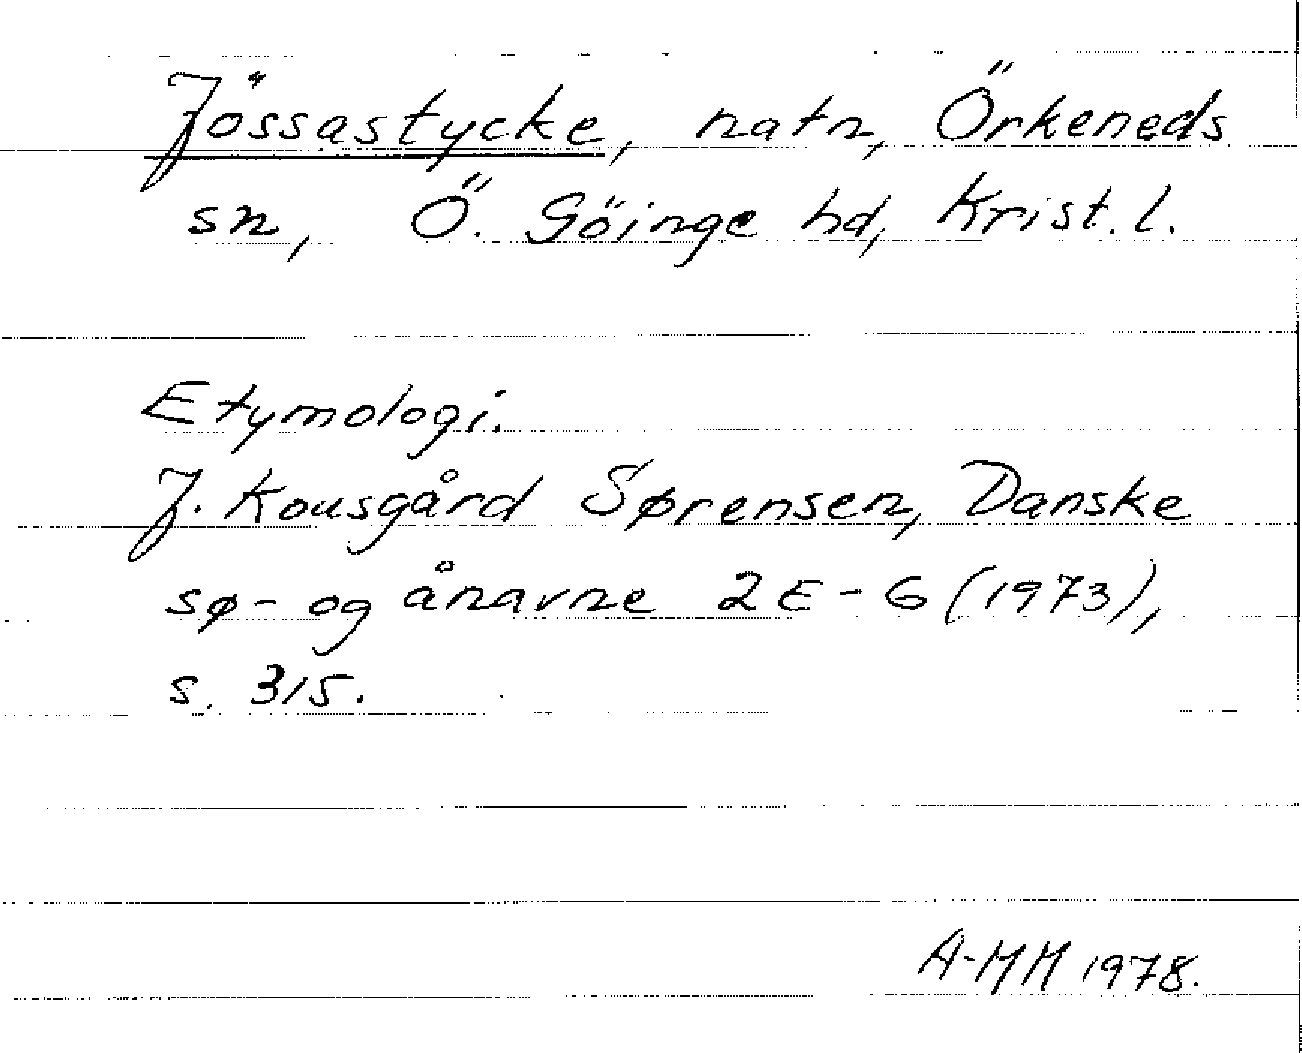 Jössastycke, natn, Örkeneds
sn, Ö. Göinge hd, Krist. l.
Etymologi.
J. Kousgård Sørensen, Danske
sø- og ånavne 2 E - G (1973),
s. 315.
A-MM 1978.